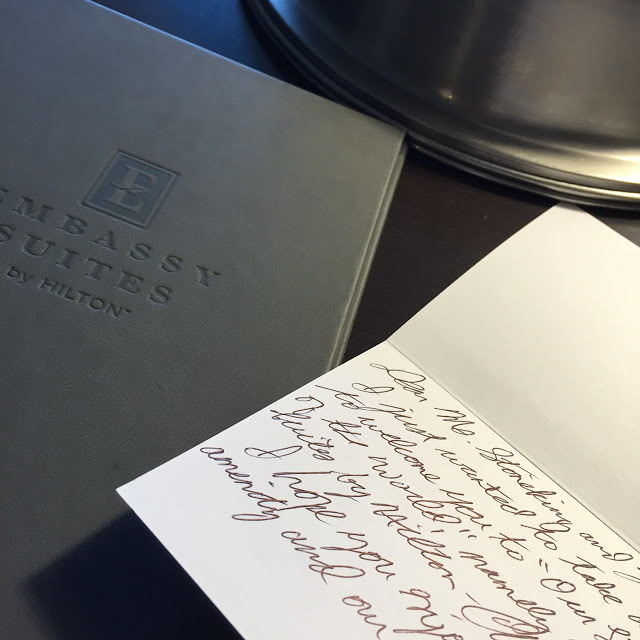 E
EMBASSY
SUITES
by HILTON™
Dear Mr. Stocking and
I just wanted to take
to welcome you to "Our
of the world", namely
Suites by Hilton
I hope you enjoy
amenity and our